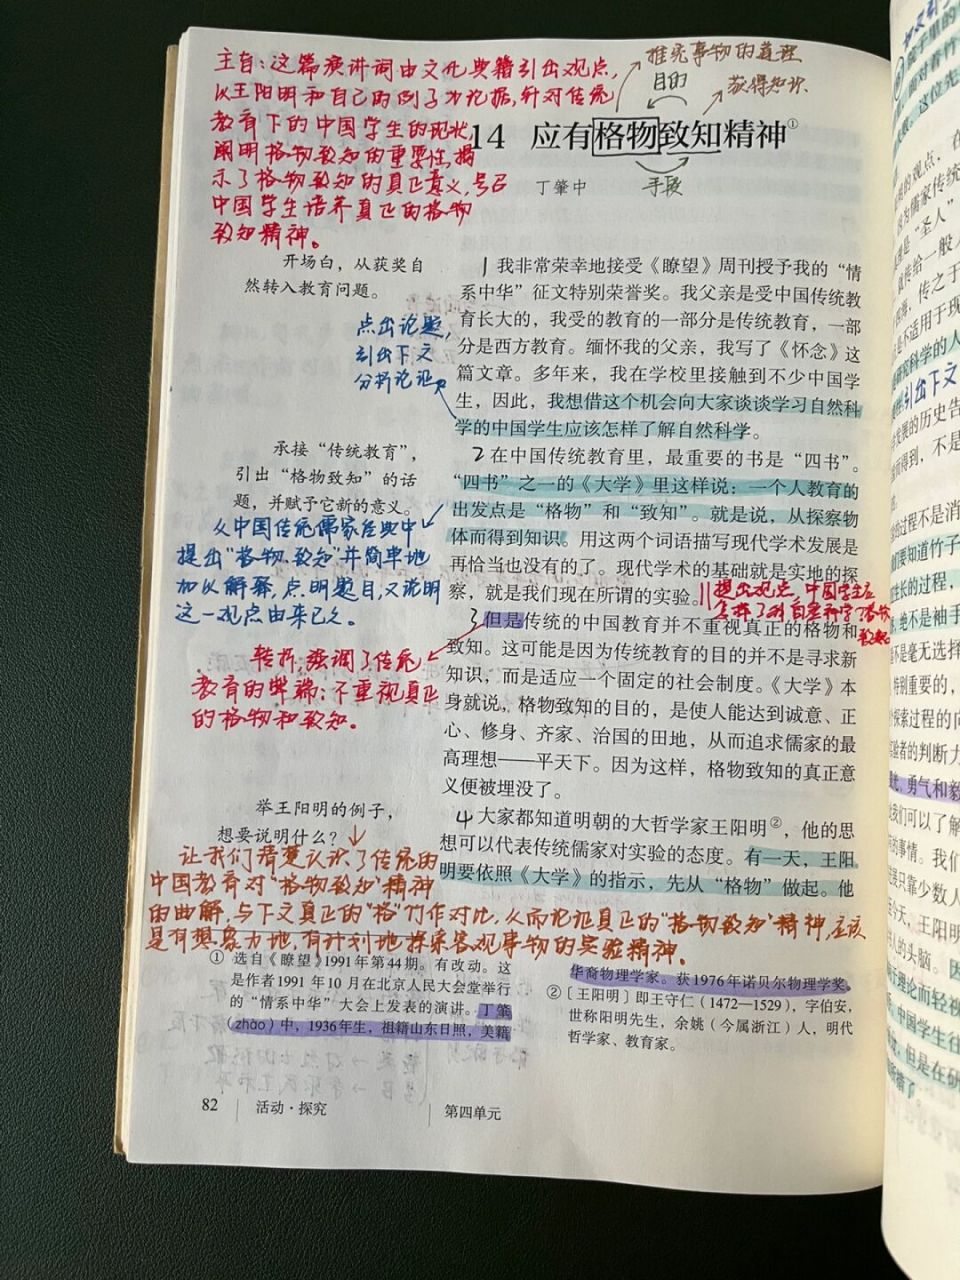 主旨：这篇演讲词由文化典籍引出观点，
以王阳明和自己的例子为论据，针对传统
教育下的中国学生的现状，
阐明格物致知的重要性，揭
示了格物致知的真正意义，号召
中国学生培养真正的格物
致知精神。
推究事物的道理
目的
获得知识
14 应有格物致知精神①
手段
丁肇中
开场白，从获奖自
然转入教育问题。
点出论题，
引出下文
分析论证
1 我非常荣幸地接受《瞭望》周刊授予我的“情
系中华”征文特别荣誉奖。我父亲是受中国传统教
育长大的，我受的教育的一部分是传统教育，一部
分是西方教育。缅怀我的父亲，我写了《怀念》这
篇文章。多年来，我在学校里接触到不少中国学
生，因此，我想借这个机会向大家谈谈学习自然科
学的中国学生应该怎样了解自然科学。
承接“传统教育”，
引出“格物致知”的话
题，并赋予它新的意义。
从中国传统儒家经典中
提出“格物致知”并简单地
加以解释，点明题目，又说明
这一观点由来已久。
2 在中国传统教育里，最重要的书是“四书”。
“四书”之一的《大学》里这样说：一个人教育的
出发点是“格物”和“致知”。就是说，从探察物
体而得到知识。用这两个词语描写现代学术发展是
再恰当也没有的了。现代学术的基础就是实地的探
察，就是我们现在所谓的实验。
提出观点，中国学生应
怎样了解自然科学？格物
致知
转折，强调了传统
教育的弊端：不重视真正
的格物和致知。
3 但是传统的中国教育并不重视真正的格物和
致知。这可能是因为传统教育的目的并不是寻求新
知识，而是适应一个固定的社会制度。《大学》本
身就说，格物致知的目的，是使人能达到诚意、正
心、修身、齐家、治国的田地，从而追求儒家的最
高理想——平天下。因为这样，格物致知的真正意
义便被埋没了。
举王阳明的例子，
想要说明什么？
4 大家都知道明朝的大哲学家王阳明②，他的思
想可以代表传统儒家对实验的态度。有一天，王阳
明要依照《大学》的指示，先从“格物”做起。他
让我们清楚认识了传统的
中国教育对“格物致知”精神
的曲解，与下文真正的“格”竹作对比，从而论证真正的“格物致知”精神，应该
是有想象力地，有计划地探索客观事物的实验精神。
① 选自《瞭望》1991年第44期。有改动。这
是作者1991年10月在北京人民大会堂举行
的“情系中华”大会上发表的演讲。丁肇
（zhào）中，1936年生，祖籍山东日照，美籍
华裔物理学家。获1976年诺贝尔物理学奖。
② 〔王阳明〕即王守仁（1472—1529），字伯安，
世称阳明先生，余姚（今属浙江）人，明代
哲学家、教育家。
82 活动·探究 第四单元